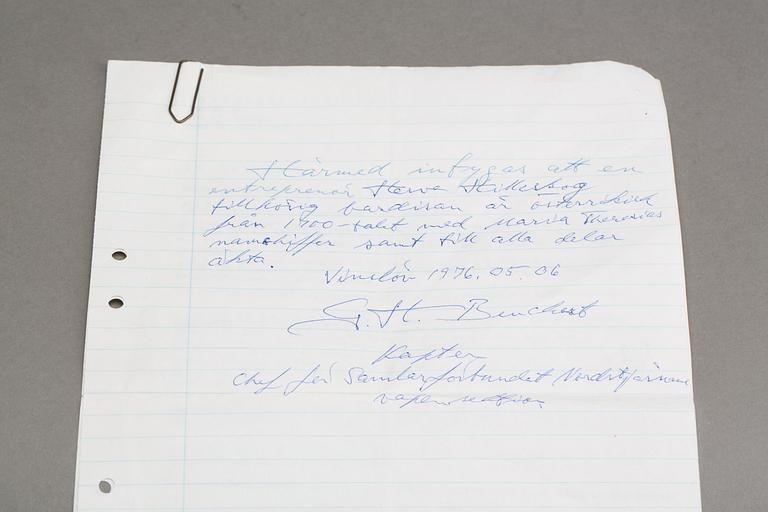 Härmed intygas att en
entreprenör Herve Hillerskog
tillhörig bardisan är österrikisk
från 1700-talet med Maria Theresias
namnchiffer samt till alla delar
äkta.
Vinslöv 1976.05.06
G. H.
Kapten
Chef för Samlarförbundet Nordstjärnans
vapensektion